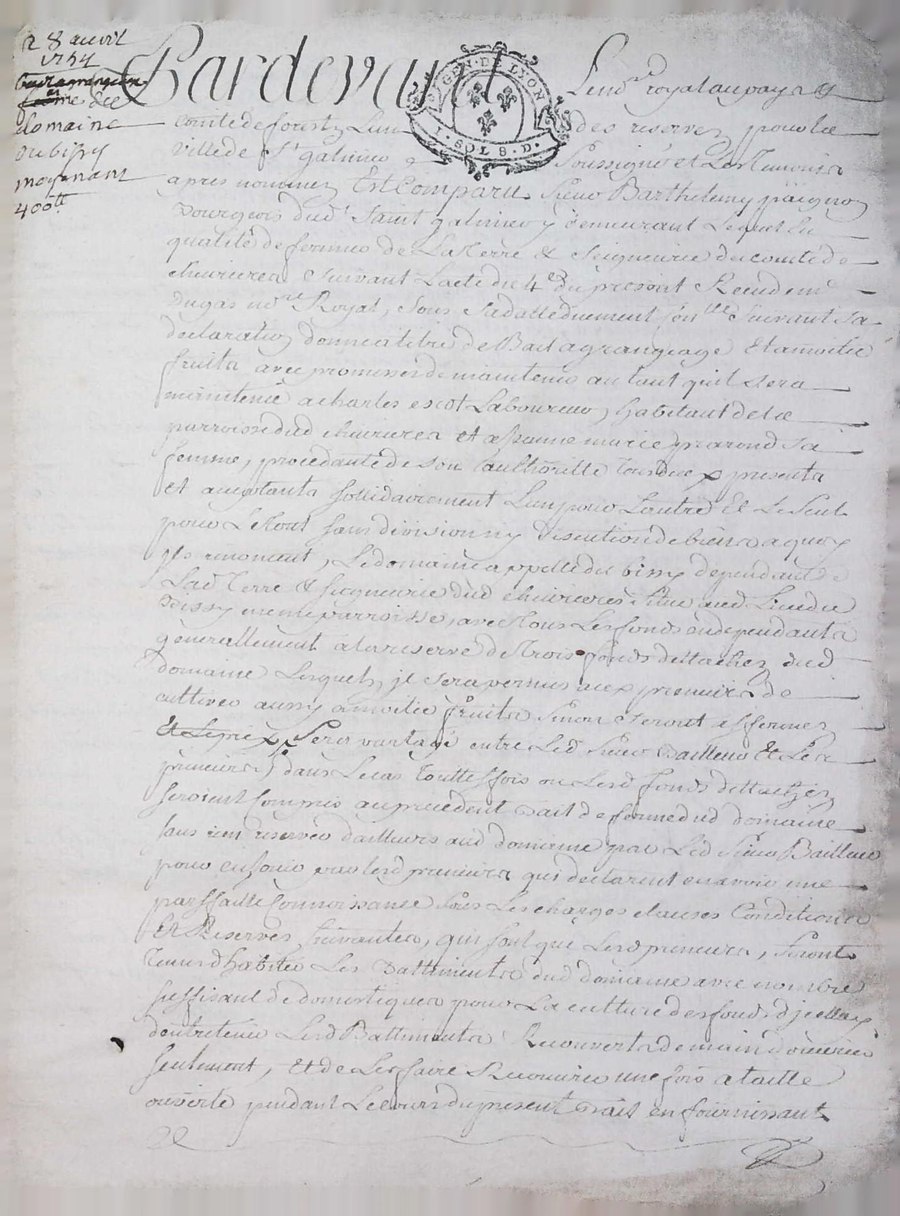 28 avvil
1754
domaine
du bissy
moyenant
400tt
Pardevant
GEN. DE LYON
1. SOL 8. D.
le no.re royal au pays et
Comté de forestz, l'un des reservez pour la
ville de St galmier Soussigné et les temoins
apres nommez Est Comparu Sieur Barthelemy
Bourgeois dud. Saint galmier y demeurant Lequel En
qualité de fermier de La terre & Seigneurie du comté de
chevrieres Suivant L'acte du 4e du present Receu de me
Dugas no.re Royal, sous Sad.
declaration donne a titre de Bail a grangeage Et a moitié
fruits avec promesse de maintenir autant qu'il sera
maintenu a charles escot Laboureur, habitant de la
parroisse dud chevrieres et a Jeanne marie sa
femme, procedante de son authoritté tous deux presents
et aceptants sollidairement L'un pour L'autre Et Le Seul
pour Le tout sans division ny discution de biens a quoy
ils renoncent, Le domaine appellé du bissy dependant de
Lad Terre & seigneurie dud chevrieres situé aud Lieu du
Bissy meme parroisse, avec tous Les fonds en dependants
generallement a la reserve de trois fonds dettachez dud
domaine Lesquels, il sera permis aux preneurs de
cultiver aussy a moitié fruits sinon seront affermez
Et Le prix sera partagé entre Led Sieur Bailleur Et Les
preneurs, dans Le cas touttesfois ou Lesd fonds dettachez
seroient compris au precedent Bail de ferme dud domaine
sans rien reserver d'ailleurs aud domaine par Led Sieur Bailleur
pour en jouir par Lesd preneurs qui declarent en avoir une
parffaitte connoissance sous Les charges clauses Conditions
Et Reserves suivantes, qui sont que Lesd preneurs, seront
tenus d'habiter Les Battiments dud domaine avec nombre
suffisant de domestiques pour La culture des fonds d'jceluy
d'entretenir Lesd Battiments Recouverts de main d'ouvrier
seulement, Et de Les faire Recouvrir une fois a taille
ouverte pendant Le cours du present Bail en fournissant